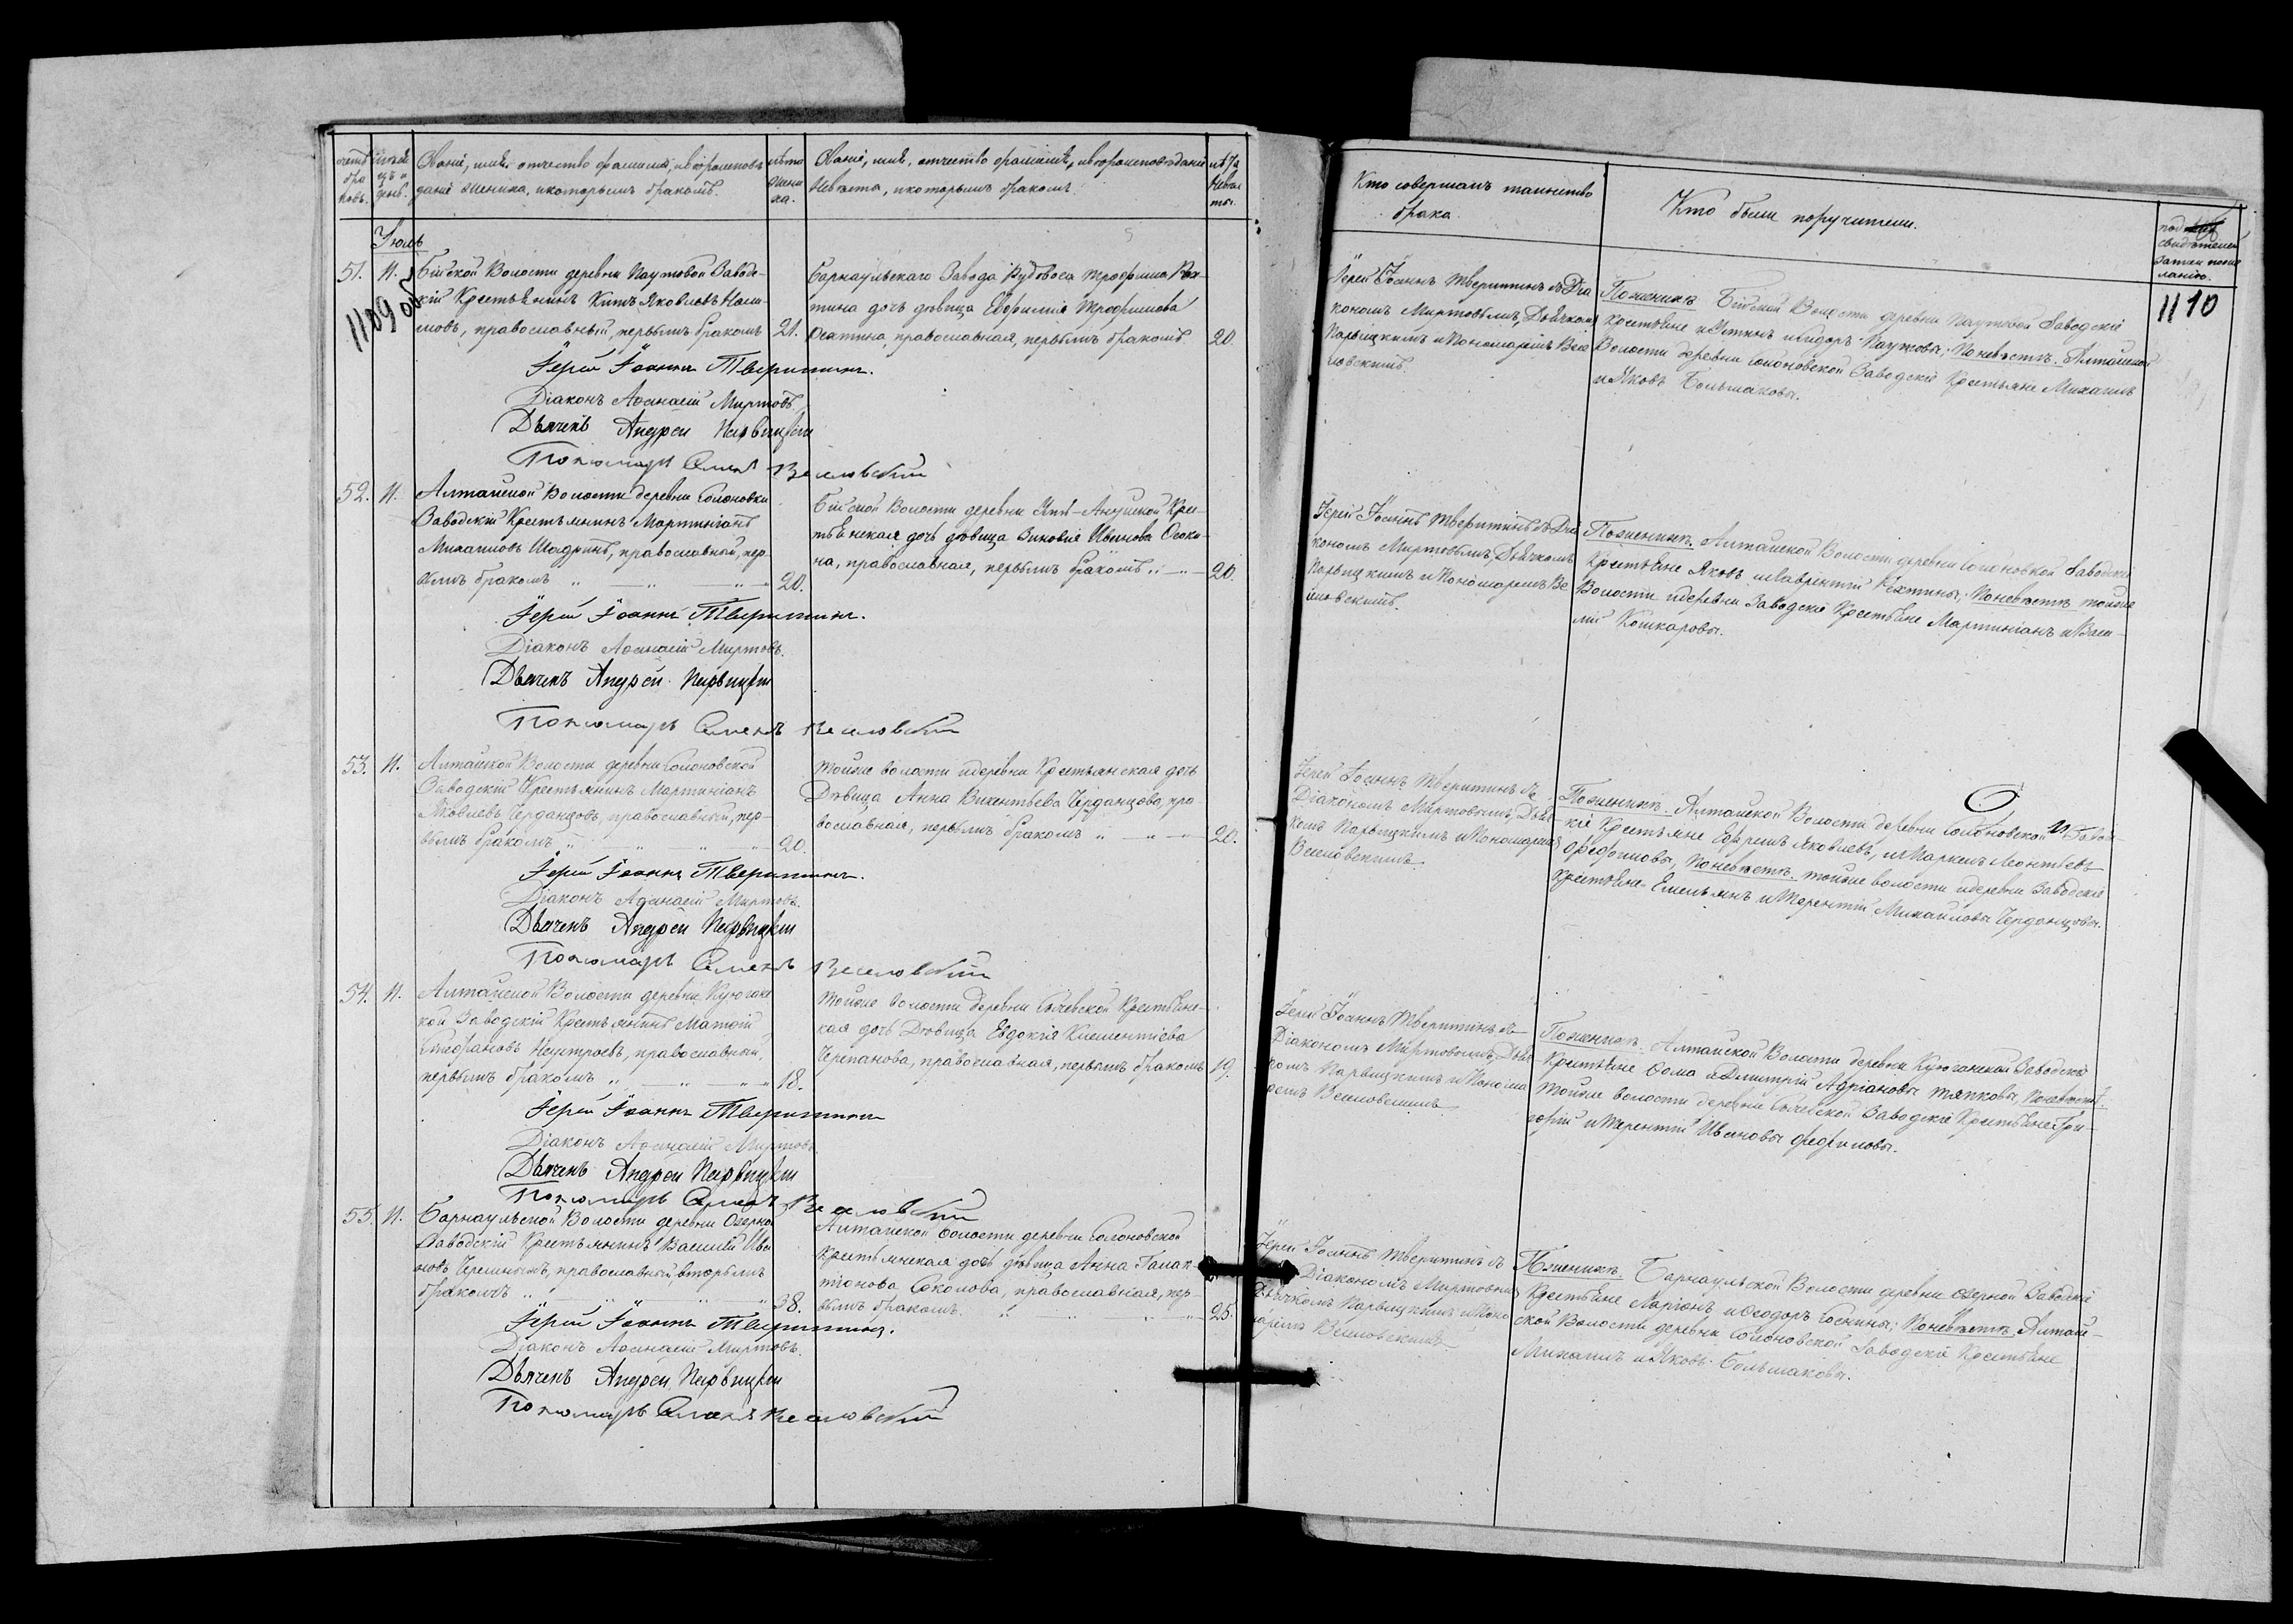 счетъ
бра
ковъ.
месяцъ и
день.
Званіе, имя, отчество фамилія, и вѣроисповѣ
даніе жениха, и которымъ бракомъ.
лѣта
жени
ха.
Званіе, имя, отчество фамилія, и вѣроисповѣданіе
Невѣста, и которымъ бракомъ.
лѣта
Невѣс
ты.
Іюль
51. 11. Бійской Волости деревни Паутовой Заводс-
кій Крестьянинъ Китъ Яковлевъ
мовъ, православный, первымъ бракомъ 21.
1109 об
Барнаульскаго Завода Рудовоса Трофима
тина дочь дѣвица Евфимія Трофимова
православная, первымъ бракомъ. 20.
Іерей Іоаннъ Тверитинъ.
Діаконъ Аѳанасій Миртовъ.
Дьячекъ Андрей Парвицкій
Пономарь Семенъ Веселовскій
52. 11. Алтайской Волости деревни Солоновки
Заводскій Крестьянинъ Мартиніанъ
Михаиловъ Шадринъ, православной, пер-
вымъ бракомъ „ „ „ 20.
Бійской Волости деревни Усть-Ануйской Крес-
тьянская дочь дѣвица Зиновія Иванова Осоки-
на, православная, первымъ бракомъ „ „ 20.
Іерей Іоаннъ Тверитинъ.
Діаконъ Аѳанасій Миртовъ.
Дьячекъ Андрей Парвицкій
Пономарь Семенъ Веселовскій
53. 11. Алтайской Волости деревни Солоновской
Заводскій Крестьянинъ Мартиніанъ
Яковлевъ Черданцовъ, православный, пер-
вымъ бракомъ „ „ „ 20.
Тойже волости и деревни Крестьянская дочь
Дѣвица Анна Викентьева Черданцова, пра-
вославная, первымъ бракомъ „ „ 20.
Іерей Іоаннъ Тверитинъ.
Діаконъ Аѳанасій Миртовъ.
Дьячекъ Андрей Парвицкій
Пономарь Семенъ Веселовскій
54. 11. Алтайской Волости деревни Куюганс
кой Заводскій Крестьянинъ Матѳій
Стефановъ Неустроевъ, православный,
первымъ бракомъ „ „ „ 18.
Тойже волости деревни Сычевской Крестьянс-
кая дочь Дѣвица Евдокія Климентіева
Черепанова, православная, первымъ бракомъ 19.
Іерей Іоаннъ Тверитинъ
Діаконъ Аѳанасій Миртовъ
Дьячекъ Андрей Парвицкій
Пономарь Семенъ Веселовскій
55. 11. Барнаульской Волости деревни Озерной
Заводскій Крестьянинъ Василій Ива
новъ православный, вторымъ
бракомъ „ „ „ 38.
Алтайской волости деревни Солоновской
Крестьянская дочь дѣвица Анна Галак-
тіонова Соколова, православная, пер-
вымъ бракомъ. „ „ „ 25.
Іерей Іоаннъ Тверитинъ.
Діаконъ Аѳанасій Миртовъ.
Дьячекъ Андрей Парвицкій
Пономарь Семенъ Веселовскій
Кто совершалъ таинство
брака.
Кто были поручители.
свидѣтелей
1110
Іерей Іоаннъ Тверитинъ съ Діа
кономъ Миртовымъ, Дьячкомъ
Парвицкимъ и Пономаремъ Весе
ловскимъ.
Поженихѣ Бійской Волости деревни Паутовой Заводскіе
Крестьяне и Сидоръ Паутовы; Поневѣстѣ. Алтайской
Волости деревни Солоновской Заводскіе Крестьяне Михаилъ
и Яковъ Большаковы.
Іерей Іоаннъ Тверитинъ съ Діа
кономъ Миртовымъ, Дьячкомъ
Парвицкимъ и Пономаремъ Ве
словскимъ.
Поженихѣ. Алтайской Волости деревни Солоновской Заводскіе
Крестьяне Яковъ и Лаврентій Поневѣстѣ тойже
Волости и деревни Заводскіе Крестьяне Мартиніанъ и Васи-
лій Кошкаровы.
Іерей Іоаннъ Тверитинъ съ
Діакономъ Миртовымъ, Дьяч
комъ Парвицкимъ и Пономаремъ
Веселовскимъ
Поженихѣ. Алтайской Волости деревни Солоновской Завод-
кіе Крестьяне Ефремъ Яковлевъ, и Маркелъ Леонтьевъ
Феофиловы, Поневѣстѣ. тойже волости и деревни Заводскіе
Крестьяне Емельянъ и Терентій Михаиловы Черданцовы.
Іерей Іоаннъ Тверитинъ съ
Діакономъ Миртовымъ, Дьяч
комъ Парвицкимъ и Понома
ремъ Веселовскимъ
Поженихѣ. Алтайской Волости деревни Куюганской Заводскіе
Крестьяне Ѳома и Дмитрій Адріановы Тяпковы, Поневѣстѣ.
тойже волости деревни Сычевской Заводскіе Крестьяне Гри-
горій и Терентій Ивановы
Іерей Іоаннъ Тверитинъ съ
Діакономъ Миртовымъ
Дьячкомъ Парвицкимъ и Поно
маремъ Веселовскимъ
Поженихѣ. Барнаульской Волости деревни Озерной Заводскіе
Крестьяне Ларіонъ и Ѳеодоръ Поневѣстѣ, Алтай-
ской Волости деревни Солоновской Заводскіе Крестьяне
Михаилъ и Яковъ Большаковы.